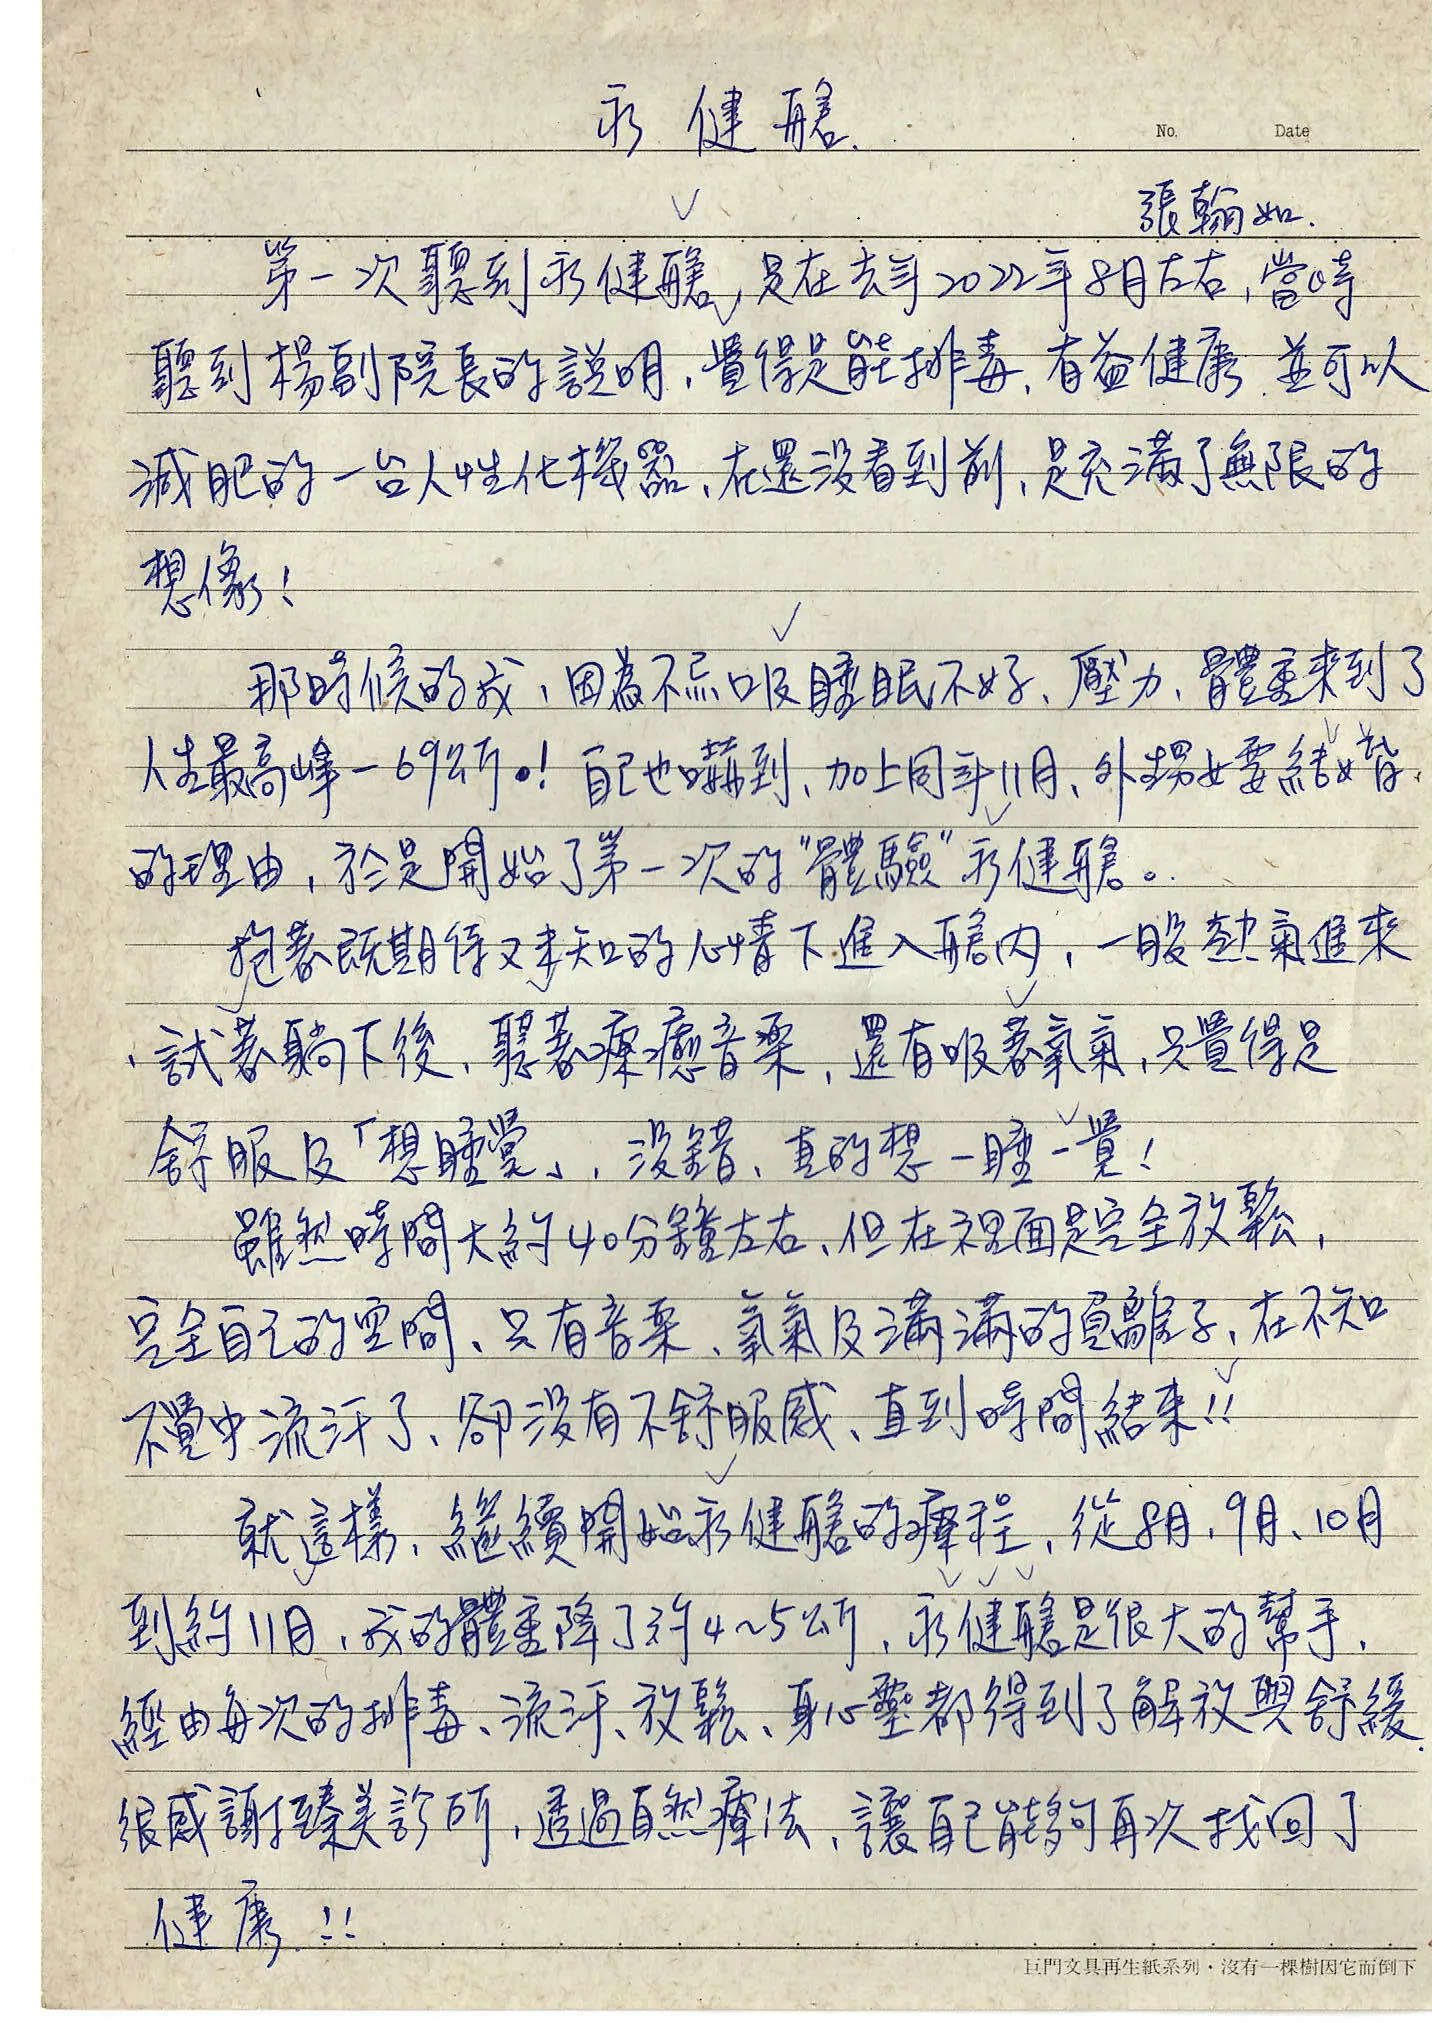 永健艙.
No. Date
張翰如.
第一次聽到永健艙,是在去年2022年8月左右,當時
聽到楊副院長的說明,覺得是能排毒,有益健康.並可以
減肥的一台人性化機器、在還沒看到前,是充滿了無限的
想像!
那時候的我,因為不忌口及睡眠不好、壓力、體重來到了
人生最高峰-69公斤。!自己也嚇到、加上同年11月、外甥女要結婚.
的理由,於是開始了第一次的"體驗"永健艙。
抱著既期待又未知的心情下進入艙內,一股熱氣進來
、試著躺下後、聽著療癒音樂,還有吸著氧氣,只覺得是
舒服及「想睡覺」,沒錯、真的想一睡一覺!
雖然時間大約40分鐘左右、但在裡面是完全放鬆,
完全自己的空間、只有音樂、氧氣及滿滿的負離子、在不知
不覺中流汗了、卻沒有不舒服感、直到時間結束!!
就這樣,繼續開始永健艙的療程,從8月,9月、10月
到約11月,我的體重降了約4~5公斤,永健艙是很大的幫手,
經由每次的排毒、流汗、放鬆、身心靈都得到了解放與舒緩.
很感謝臻美診所,透過自然療法,讓自己能夠再次找回了
健康.!!
巨門文具再生紙系列・沒有一棵樹因它而倒下